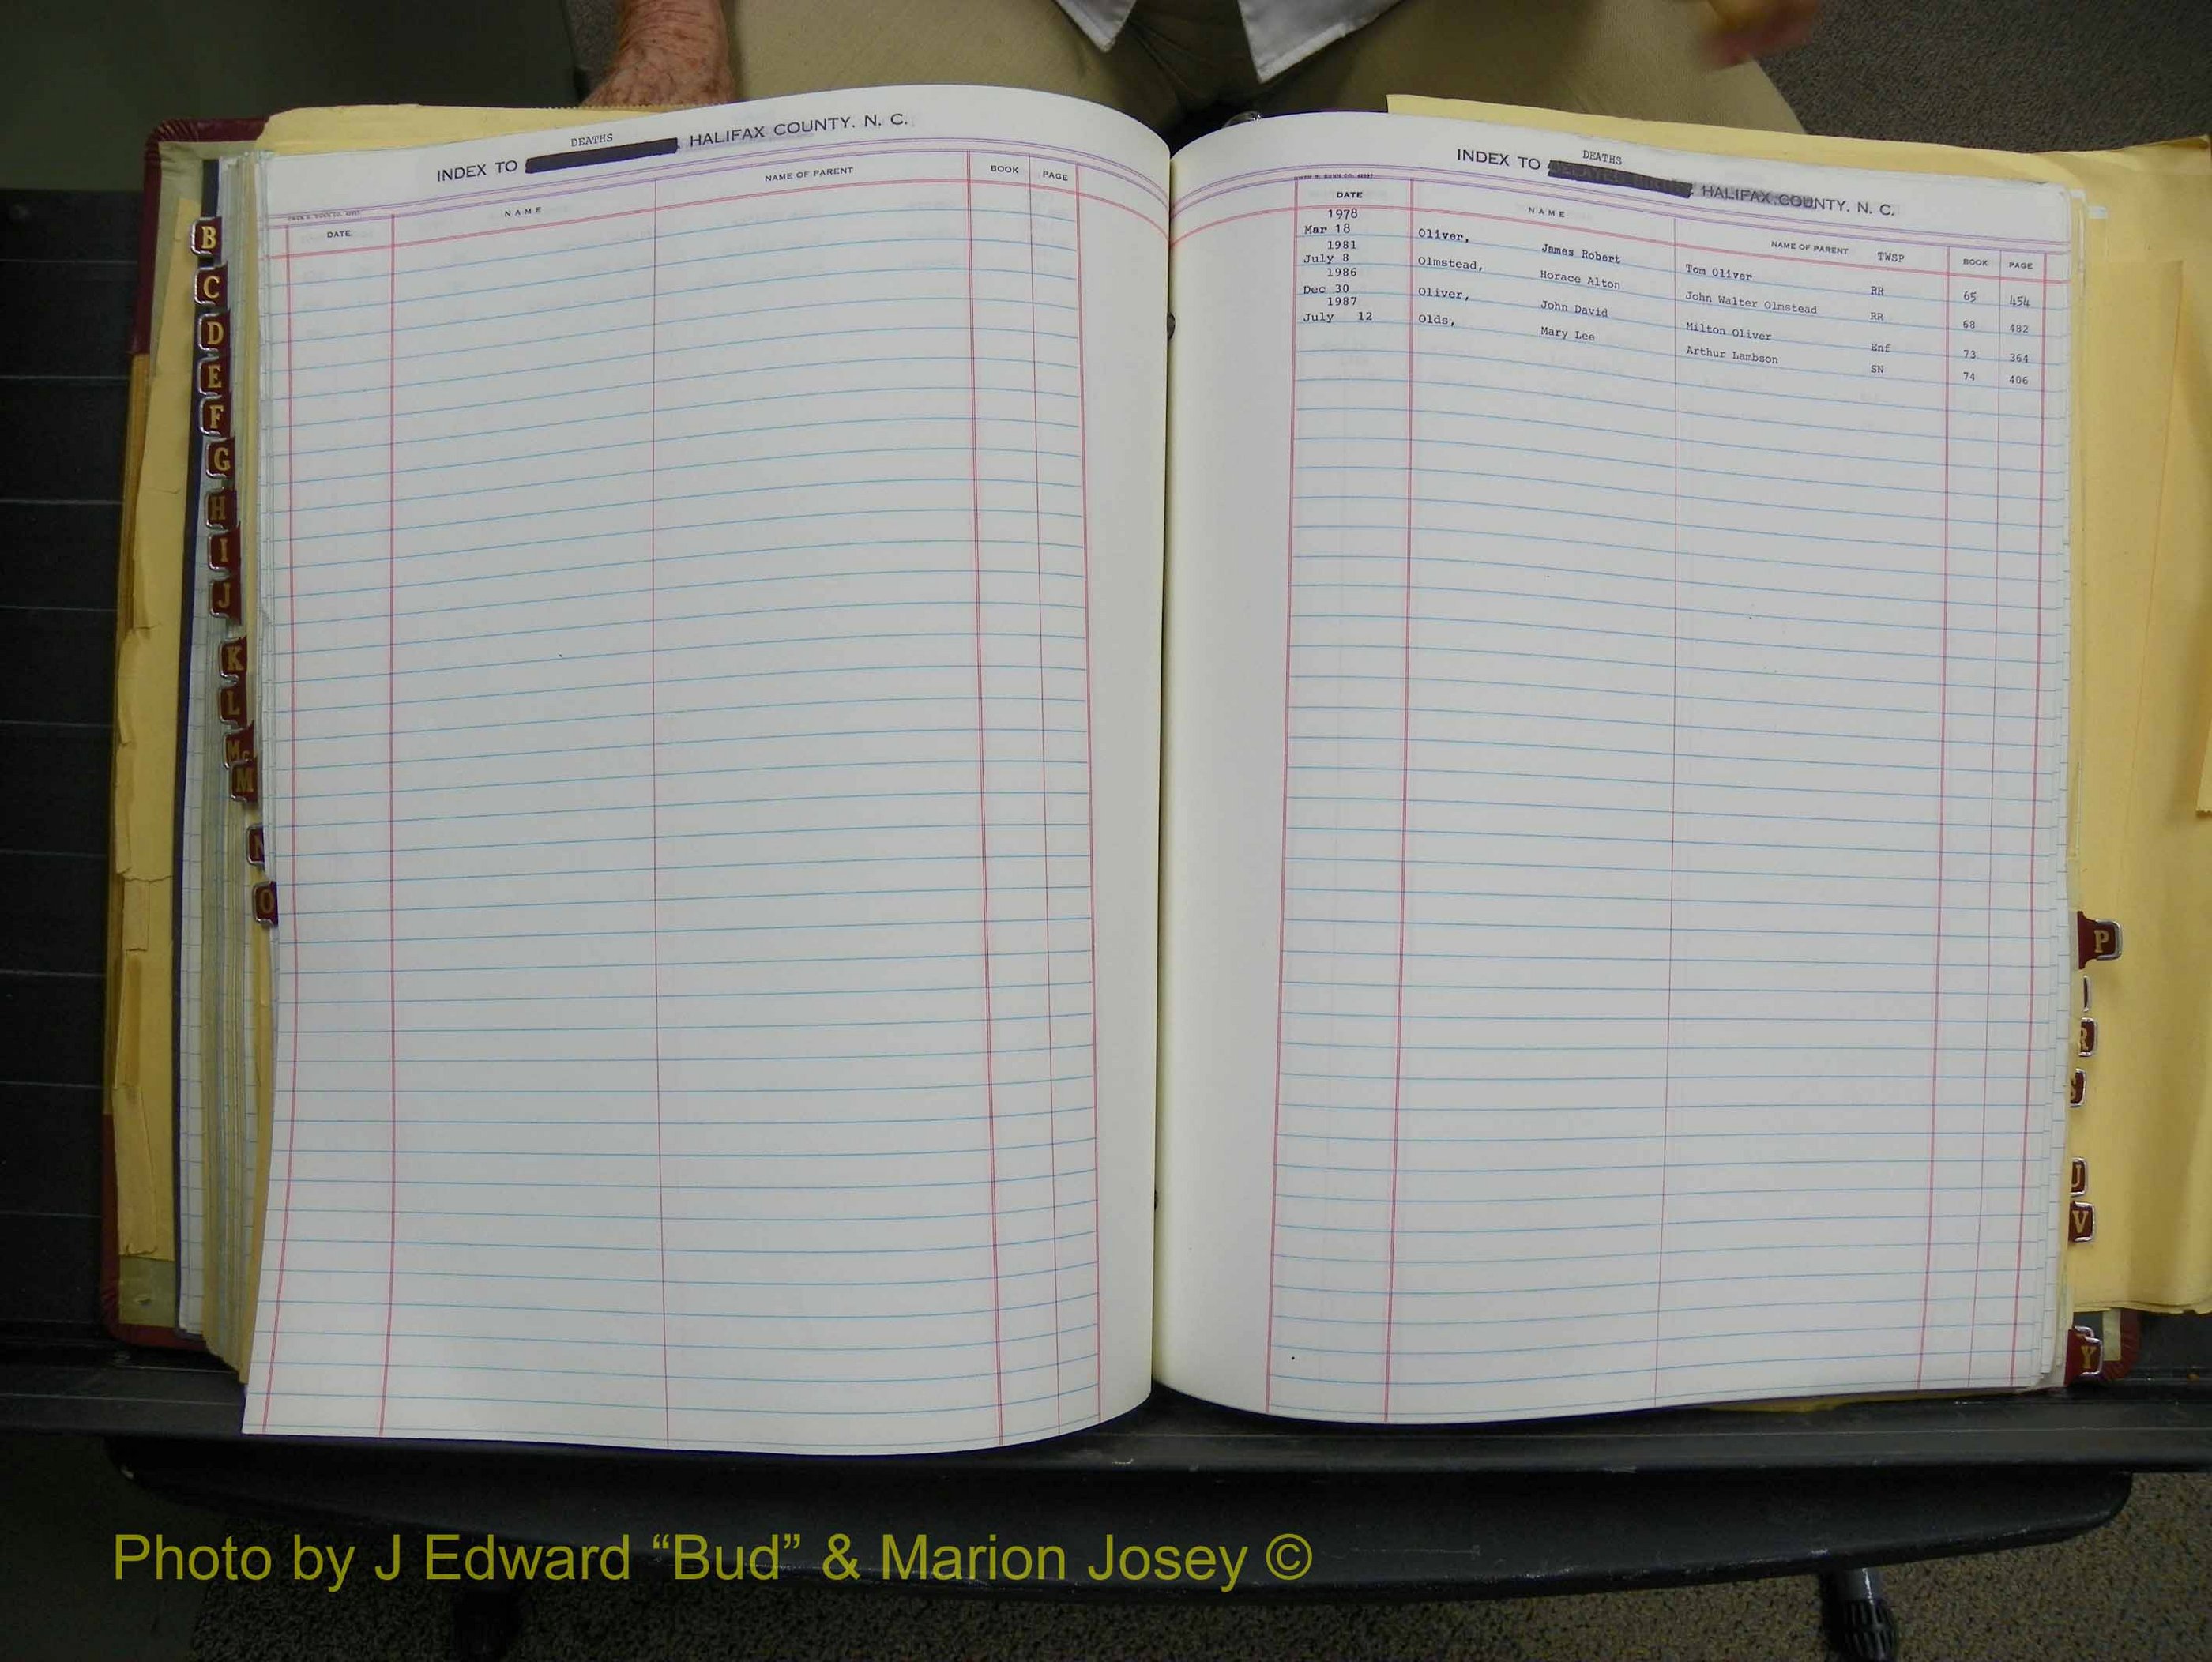 DEATHS
INDEX TO HALIFAX COUNTY. N. C.
DATE NAME NAME OF PARENT BOOK PAGE
B
C
D
E
F
G
H
I
J
K
L
Mc
M
N
O
DEATHS
INDEX TO HALIFAX COUNTY. N. C.
DATE NAME NAME OF PARENT TWSP BOOK PAGE
1978
Mar 18 Oliver, James Robert Tom Oliver RR 65 454
1981
July 8 Olmstead, Horace Alton John Walter Olmstead RR 68 482
1986
Dec 30 Oliver, John David Milton Oliver Enf 73 364
1987
July 12 Olds, Mary Lee Arthur Lambson SN 74 406
P
R
S
U
V
Y
Photo by J Edward “Bud” & Marion Josey ©